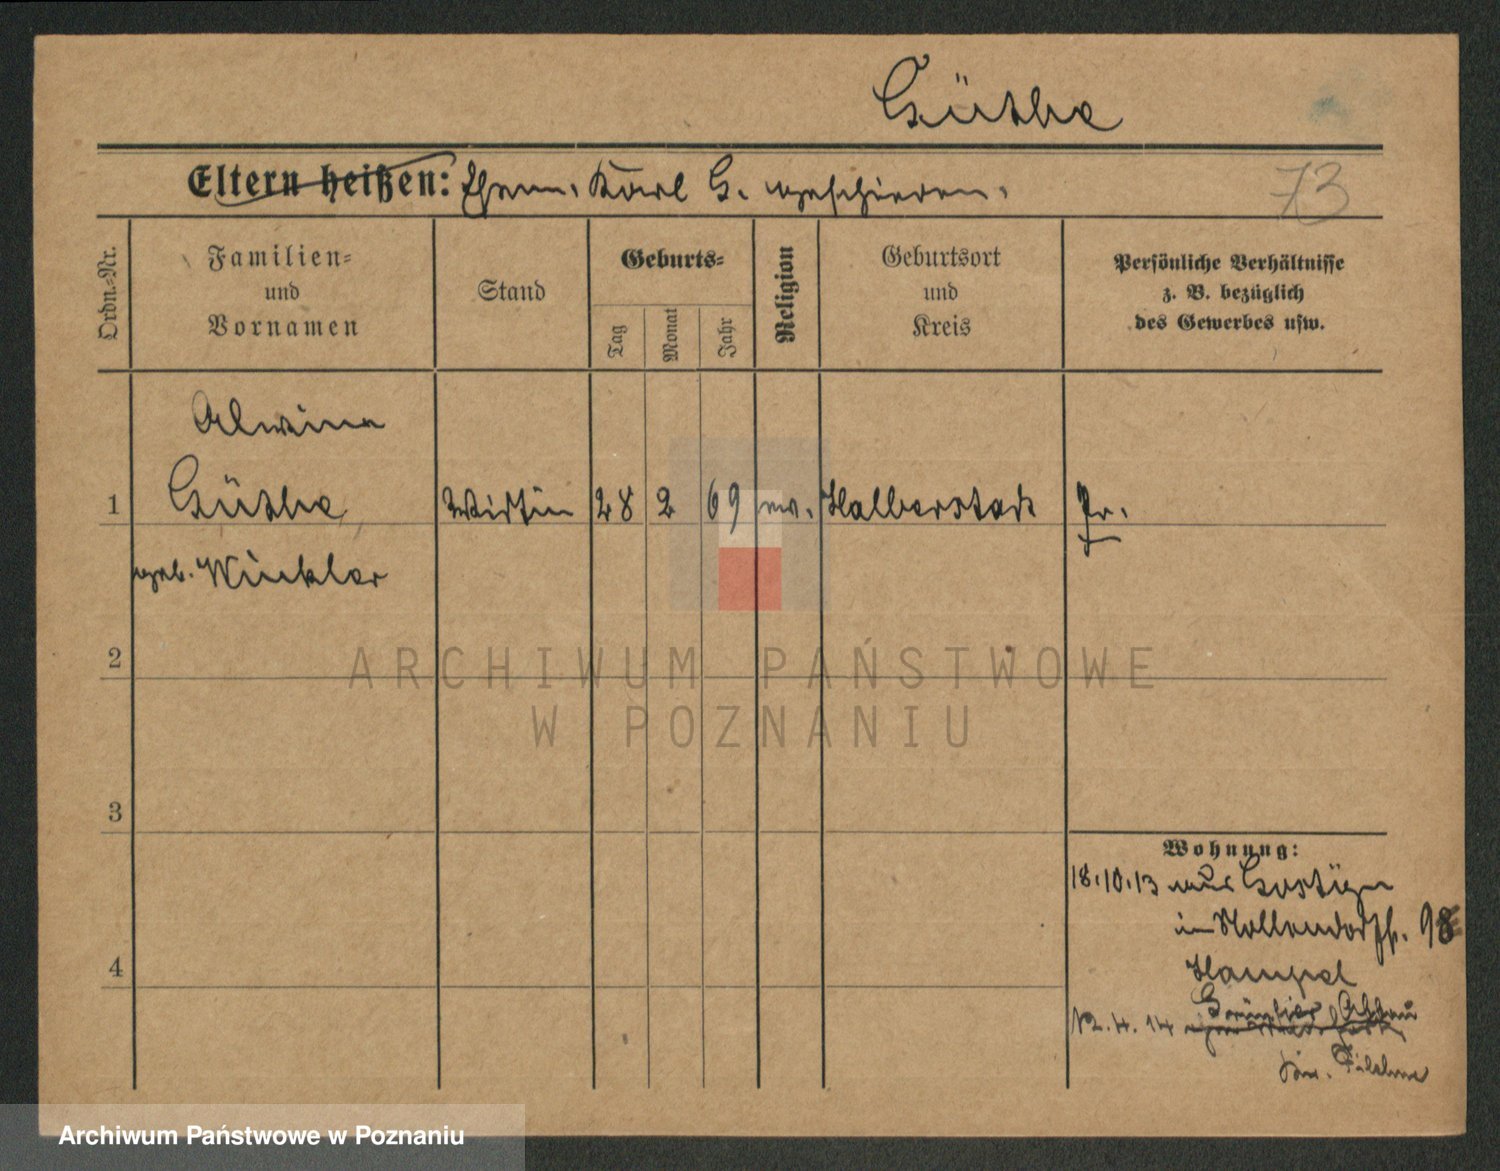 Güthe
Eltern heißen: Ehem. Karl G. geschieden.
73
Ordn.-Nr.
Familien-
und
Vornamen
Stand
Geburts-
Tag
Monat
Jahr
Religion
Geburtsort
und
Kreis
Persönliche Verhältnisse
z. B. bezüglich
des Gewerbes usw.
Alwine
1 Güthe, Wirtin 28 2 69 ev. Halberstadt Pr.
geb. Winkler
2
3
4
Wohnung:
18.10.13 aus Gostyn
in Nollendorfstr. 98
Hampel
12.4.14
Kr. Filehne
ARCHIWUM PAŃSTWOWE
W POZNANIU
Archiwum Państwowe w Poznaniu